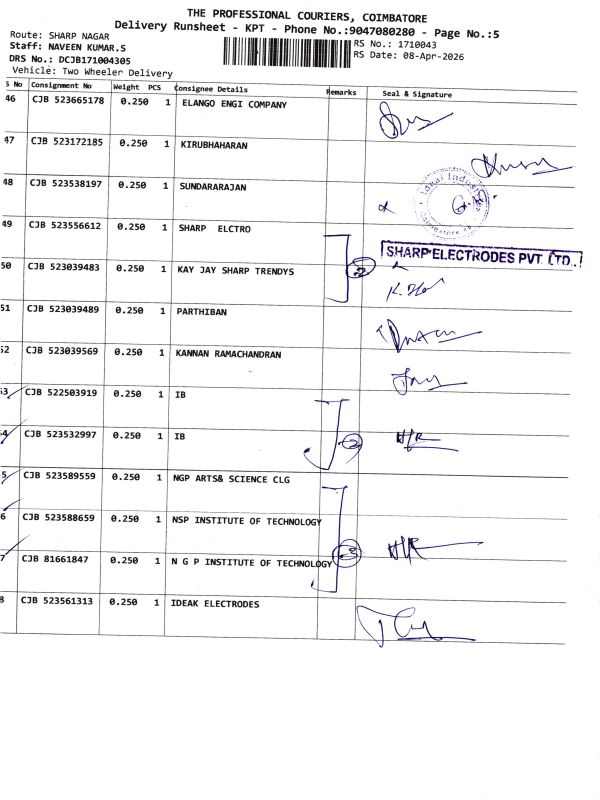 THE PROFESSIONAL COURIERS, COIMBATORE
Delivery Runsheet - KPT - Phone No.:9047080280 - Page No.:5
Route: SHARP NAGAR
Staff: NAVEEN KUMAR.S
RS No.: 1710043
DRS No.: DCJB171004305
RS Date: 08-Apr-2026
Vehicle: Two Wheeler Delivery
S No Consignment No Weight PCS Consignee Details Remarks Seal & Signature
46 CJB 523665178 0.250 1 ELANGO ENGI COMPANY
47 CJB 523172185 0.250 1 KIRUBHAHARAN
48 CJB 523538197 0.250 1 SUNDARARAJAN
49 CJB 523556612 0.250 1 SHARP ELCTRO
SHARP ELECTRODES PVT. LTD.,
50 CJB 523039483 0.250 1 KAY JAY SHARP TRENDYS 2
51 CJB 523039489 0.250 1 PARTHIBAN
52 CJB 523039569 0.250 1 KANNAN RAMACHANDRAN
53 CJB 522503919 0.250 1 IB
54 CJB 523532997 0.250 1 IB 2
5 CJB 523589559 0.250 1 NGP ARTS& SCIENCE CLG
6 CJB 523588659 0.250 1 NSP INSTITUTE OF TECHNOLOGY
7 CJB 81661847 0.250 1 N G P INSTITUTE OF TECHNOLOGY 3
8 CJB 523561313 0.250 1 IDEAK ELECTRODES